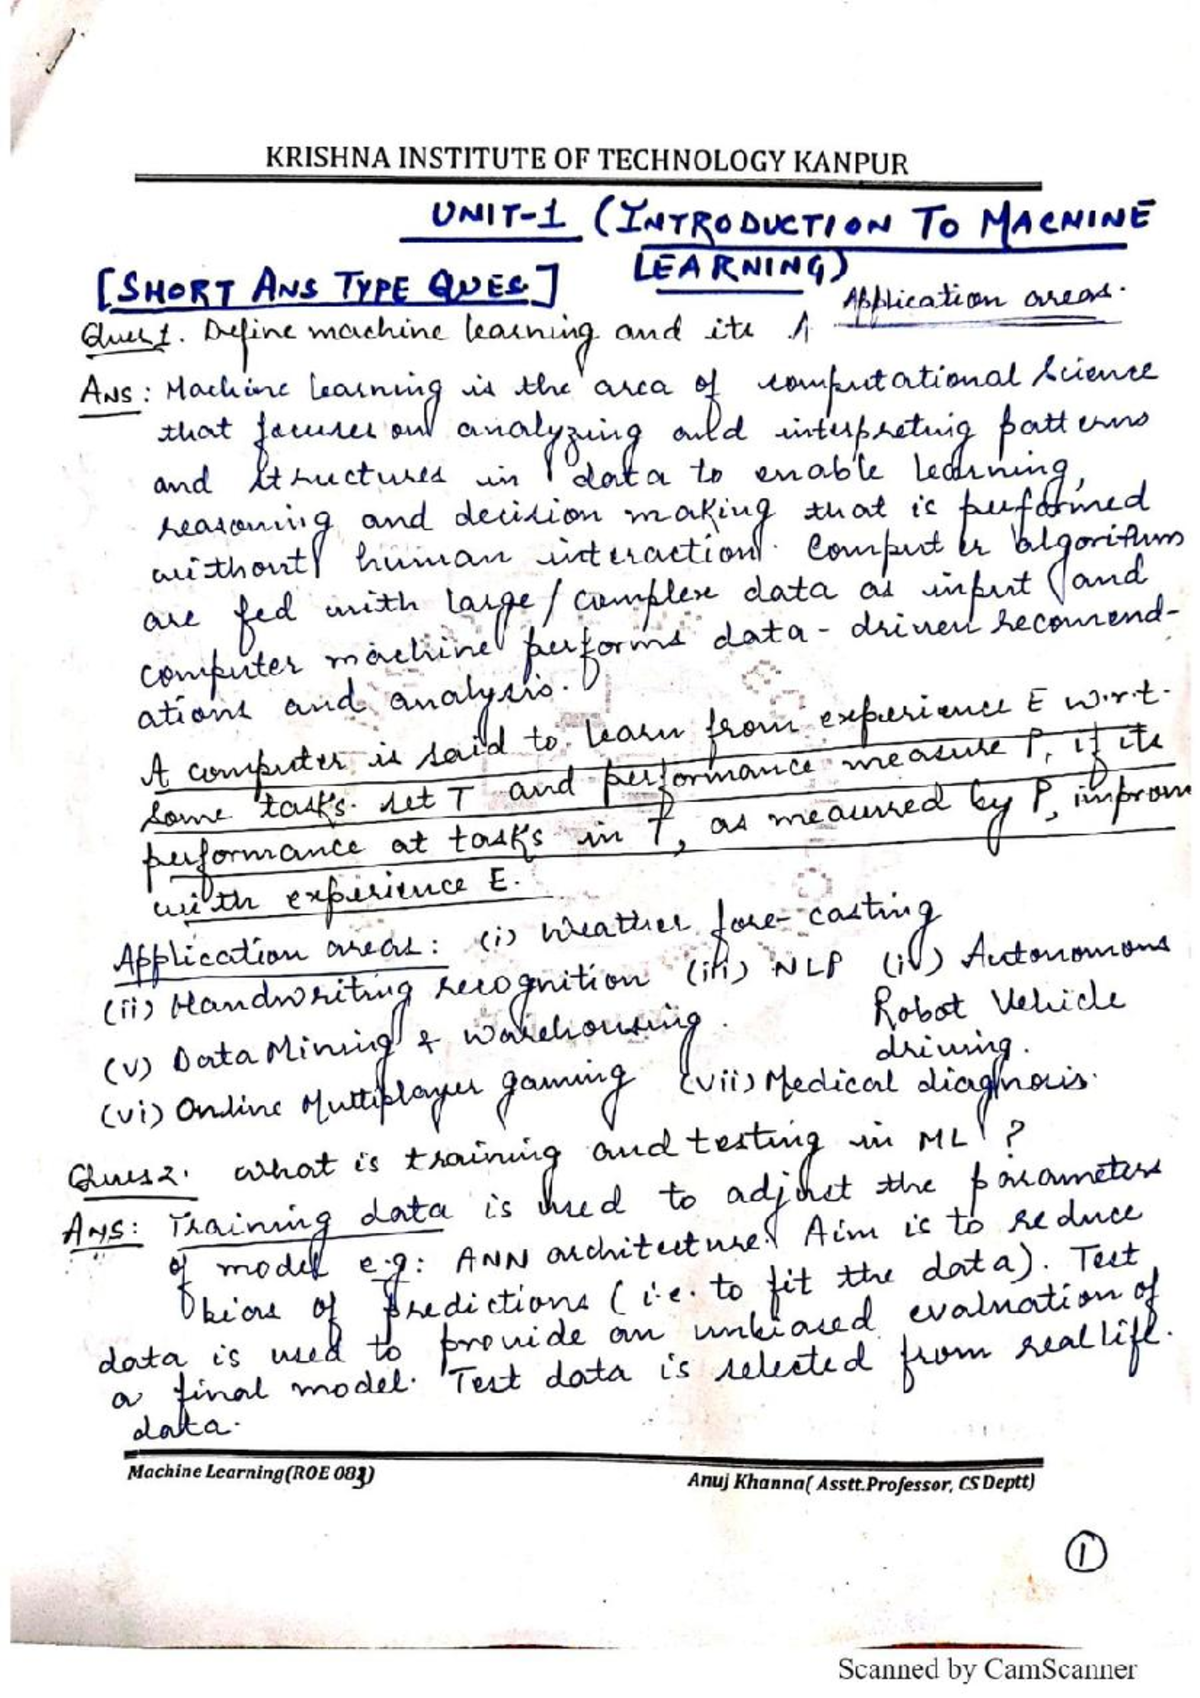 KRISHNA INSTITUTE OF TECHNOLOGY KANPUR
UNIT-1 (INTRODUCTION TO MACHINE
LEARNING)
[SHORT ANS TYPE QUES.]
Application areas.
Ques1. Define machine learning and its ⋀
Ans: Machine learning is the area of computational science
that focuses on analyzing and interpreting patterns
and structures in data to enable learning,
reasoning and decision making that is performed
without human interaction. Computer algorithms
are fed with large/complex data as input and
computer machine performs data-driven recommend-
ations and analysis.
A computer is said to learn from experience E w.r.t.
some tasks set T and performance measure P, if its
performance at tasks in T, as measured by P, improve
with experience E.
Application areas: (i) Weather fore-casting
(ii) Handwriting recognition (iii) NLP (iv) Autonomous
Robot Vehicle
driving.
(v) Data Mining & Warehousing.
(vi) Online Multiplayer gaming (vii) Medical diagnosis.
Ques2. What is training and testing in ML?
Ans: Training data is used to adjust the parameters
of model e.g: ANN architecture. Aim is to reduce
bias of predictions (i.e. to fit the data). Test
data is used to provide an unbiased evaluation of
a final model. Test data is selected from real life.
data.
Machine Learning(ROE 083) Anuj Khanna( Asstt.Professor, CS Deptt)
1
Scanned by CamScanner